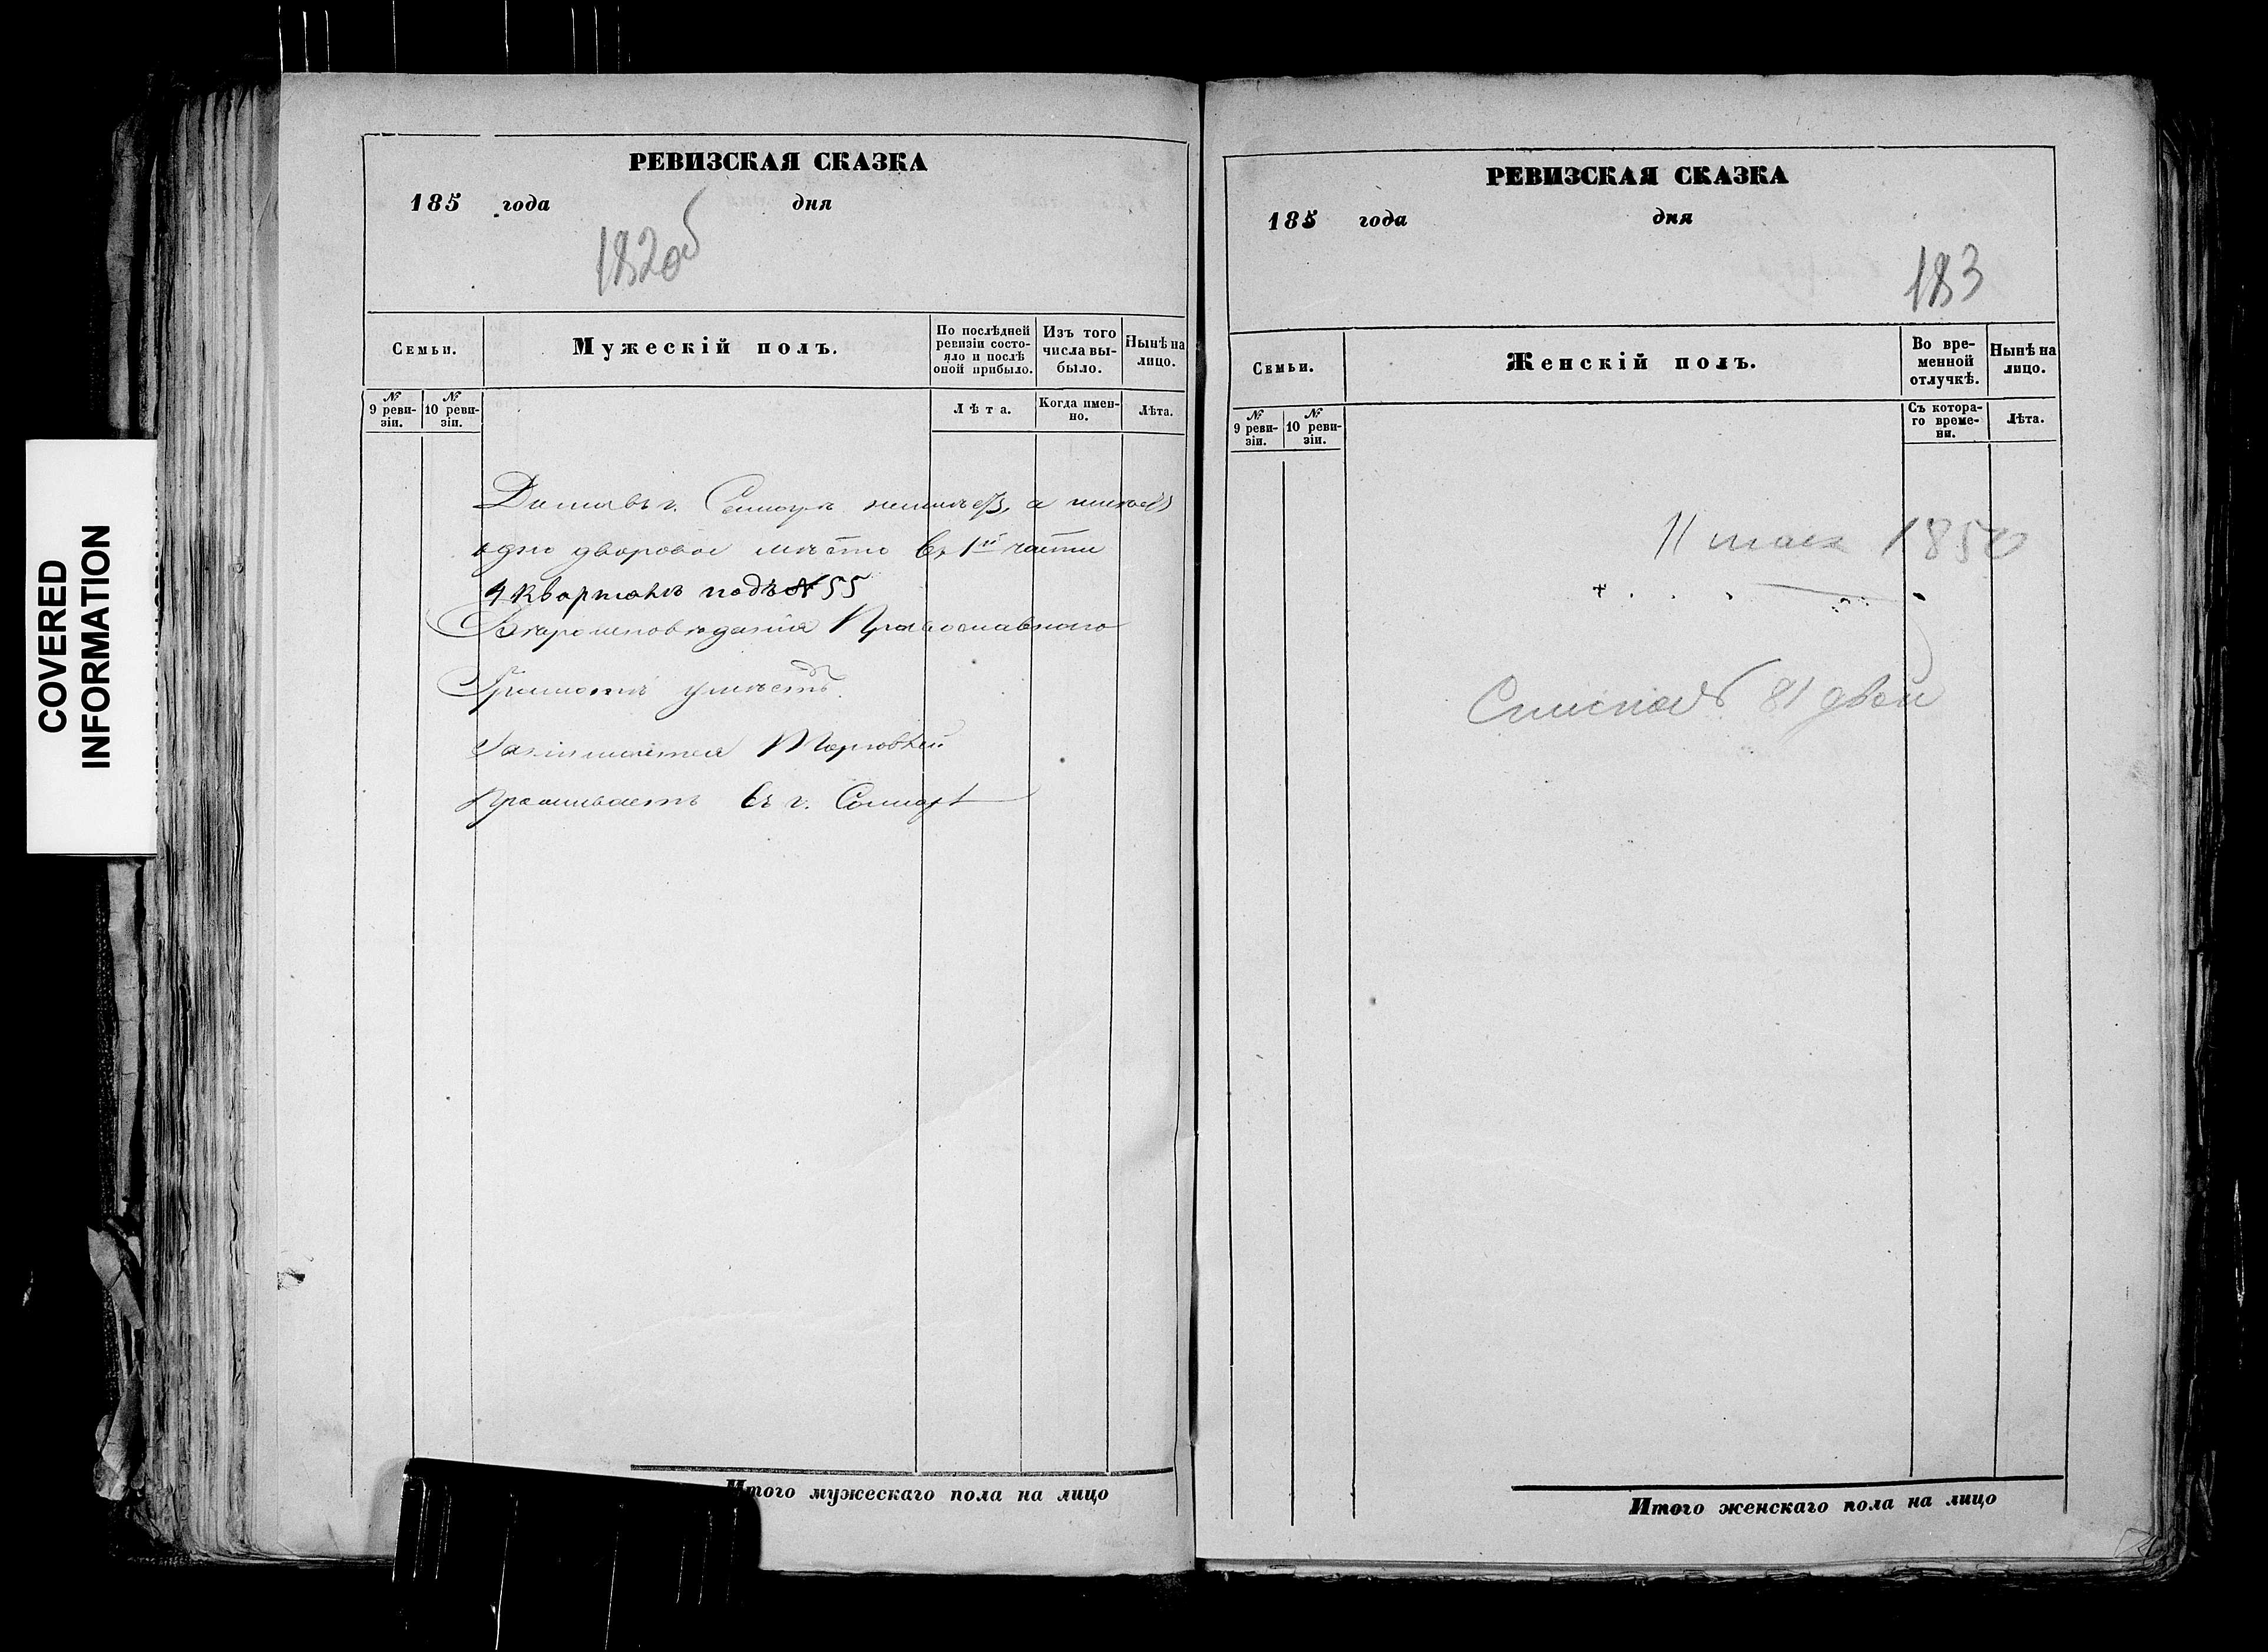 COVERED
INFORMATION
РЕВИЗСКАЯ СКАЗКА
185 года дня
182об
Семьи.
Мужескій полъ.
По послѣдней ревизіи состояло и послѣ оной прибыло.
Изъ того числа выбыло.
Нынѣ на лицо.
№ 9 ревизіи.
№ 10 ревизіи.
Лѣта.
Когда именно.
Лѣта.
Дома въ г. Самарѣ неимѣетъ, а имѣетъ
одно дворовое мѣсто въ 1й части
4 кварталѣ подъ № 55
Вѣроисповѣданія Православнаго
Грамотѣ умѣетъ.
Занимается Торговлей
Проживаетъ въ г. Самарѣ
Итого мужескаго пола на лицо
РЕВИЗСКАЯ СКАЗКА
185 года дня
183
Семьи.
Женскій полъ.
Во временной отлучкѣ.
Нынѣ на лицо.
№ 9 ревизіи.
№ 10 ревизіи.
Съ котораго времени.
Лѣта.
11 мая 1850
81
Итого женскаго пола на лицо